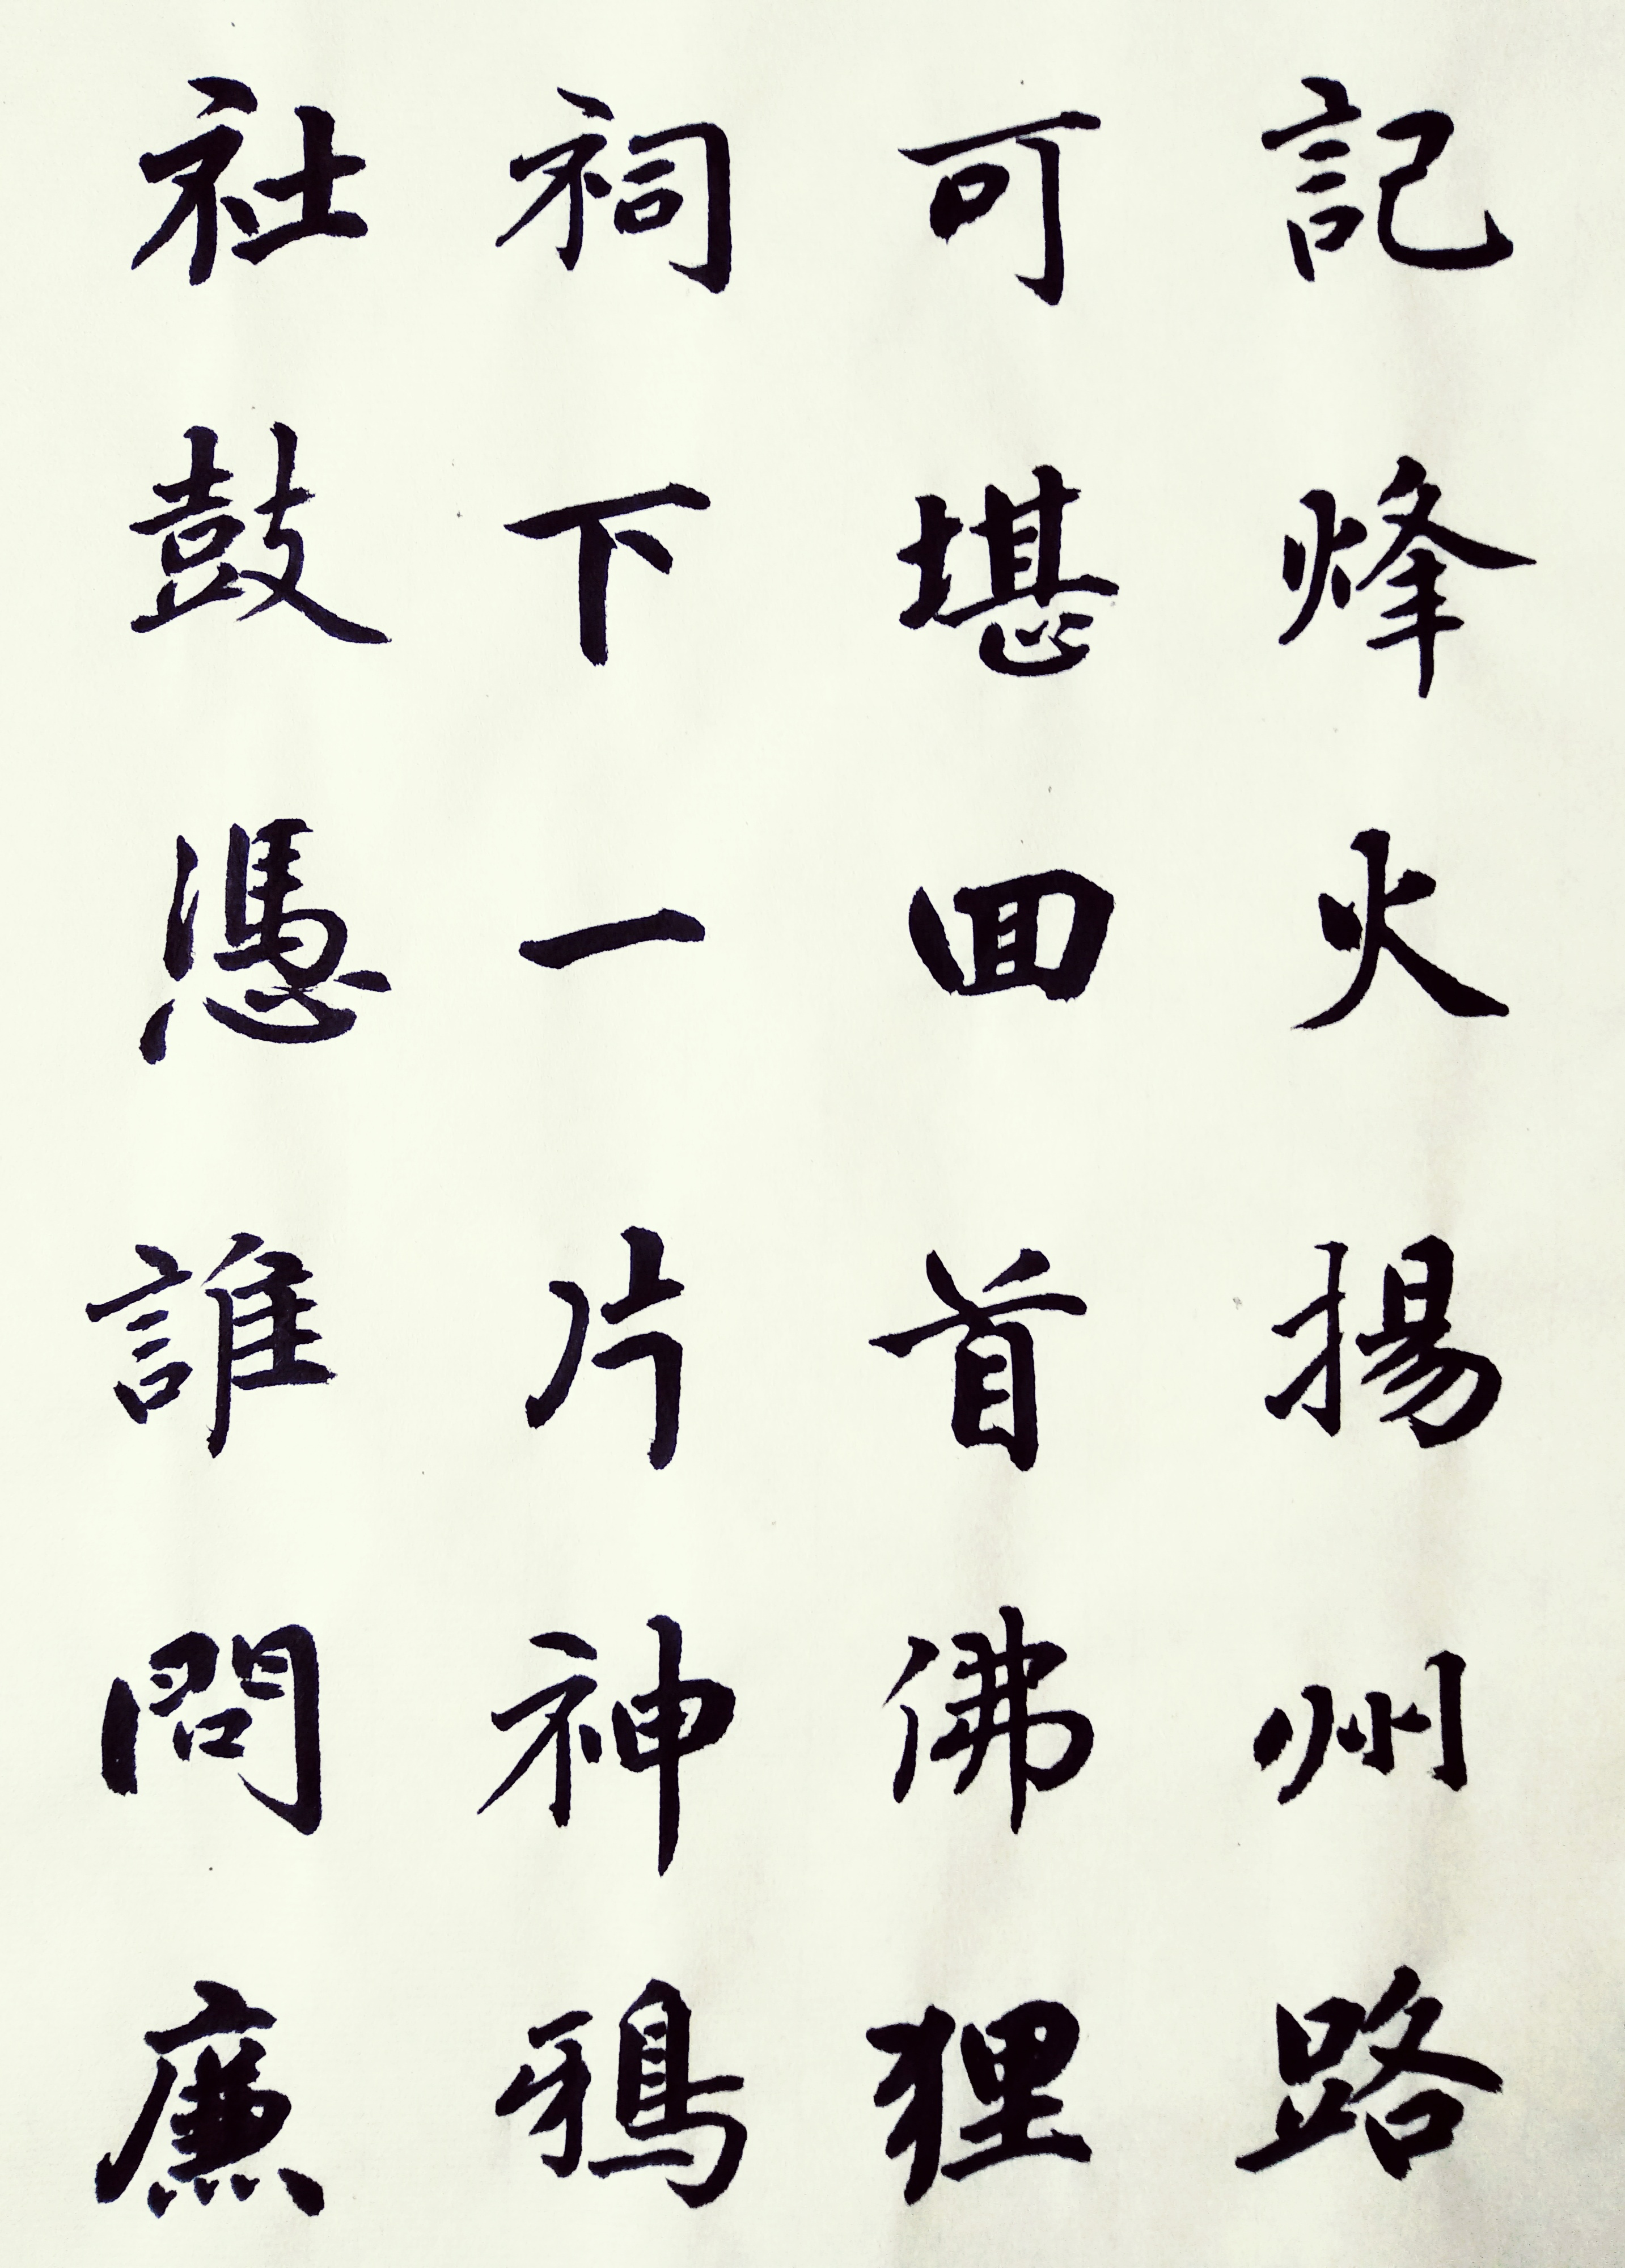 記烽火揚州路
可堪回首佛狸
祠下一片神鴉
社鼓憑誰問廉